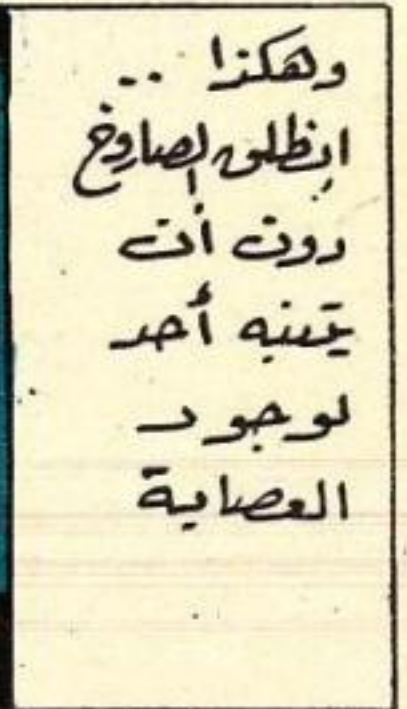 وهكذا ..
انطلق الصاروخ
دون أن
يتنبه أحد
لوجود
العصابة